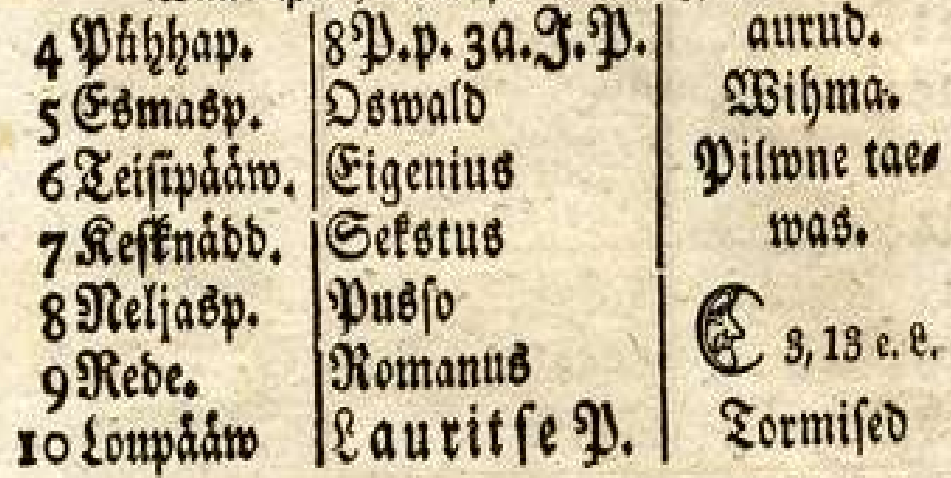 4 Pühhap. 8 P. p. 3a. J. P. aurud.
5 Esmasp. Oswald Wihma.
6 Teisipääw. Eigenius Pilwne tae-
7 Kesknädd. Sekstus was.
8 Neljasp. Pusso
9 Rede. Romanus 3, 13 e. L.
10 Loupääw Lauritse P. Tormised